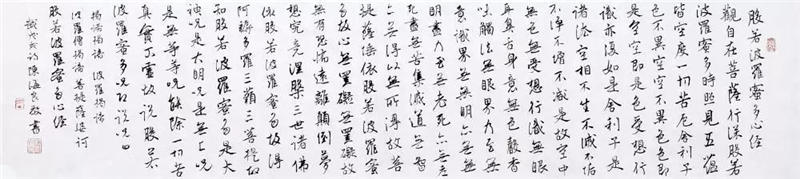 般若波羅蜜多心經
觀自在菩薩行深般若
波羅蜜多時照見五蘊
皆空度一切苦厄舍利子
色不異空空不異色色即
是空空即是色受想行
識亦復如是舍利子是
諸法空相不生不滅不垢
不淨不增不減是故空中
無色無受想行識無眼
耳鼻舌身意無色聲香
味觸法無眼界乃至無
意識界無無明亦無無
明盡乃至無老死亦無老
死盡無苦集滅道無智
亦無得以無所得故菩
提薩埵依般若波羅蜜
多故心無罣礙無罣礙故
無有恐怖遠離顛倒夢
想究竟涅槃三世諸佛
依般若波羅蜜多故得
阿耨多羅三藐三菩提故
知般若波羅蜜多是大
神咒是大明咒是無上咒
是無等等咒能除一切苦
真實不虛故說般若
波羅蜜多咒即說咒曰
揭諦揭諦 波羅揭諦
波羅僧揭諦 菩提薩婆訶
般若波羅蜜多心經
歲戊戌 陳海良敬書